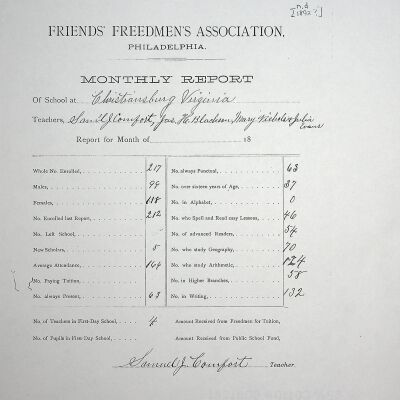 [n.d. 1892?]
FRIENDS' FREEDMEN'S ASSOCIATION,
PHILADELPHIA.
MONTHLY REPORT
Of School at Christiansburg Virginia
Teachers, Saml J. Comfort, Jas. H. Blackwell, Mary Nicholson Julia Evans
Report for Month of 18
Whole No. Enrolled, 217
Males, 99
Females, 118
No. Enrolled last Report, 212
No. Left School,
New Scholars, 5
Average Attendance, 164
No. Paying Tuition,
No. always Present, 63
No. always Punctual, 63
No. over sixteen years of Age, 37
No. in Alphabet, 0
No. who Spell and Read easy Lessons, 46
No. of advanced Readers, 54
No. who study Geography, 70
No. who study Arithmetic, 124
No. in Higher Branches, 58
No. in Writing, 132
No. of Teachers in First-Day School, 4
No. of Pupils in First-Day School,
Amount Received from Freedmen for Tuition,
Amount Received from Public School Fund,
Samuel J. Comfort Teacher.